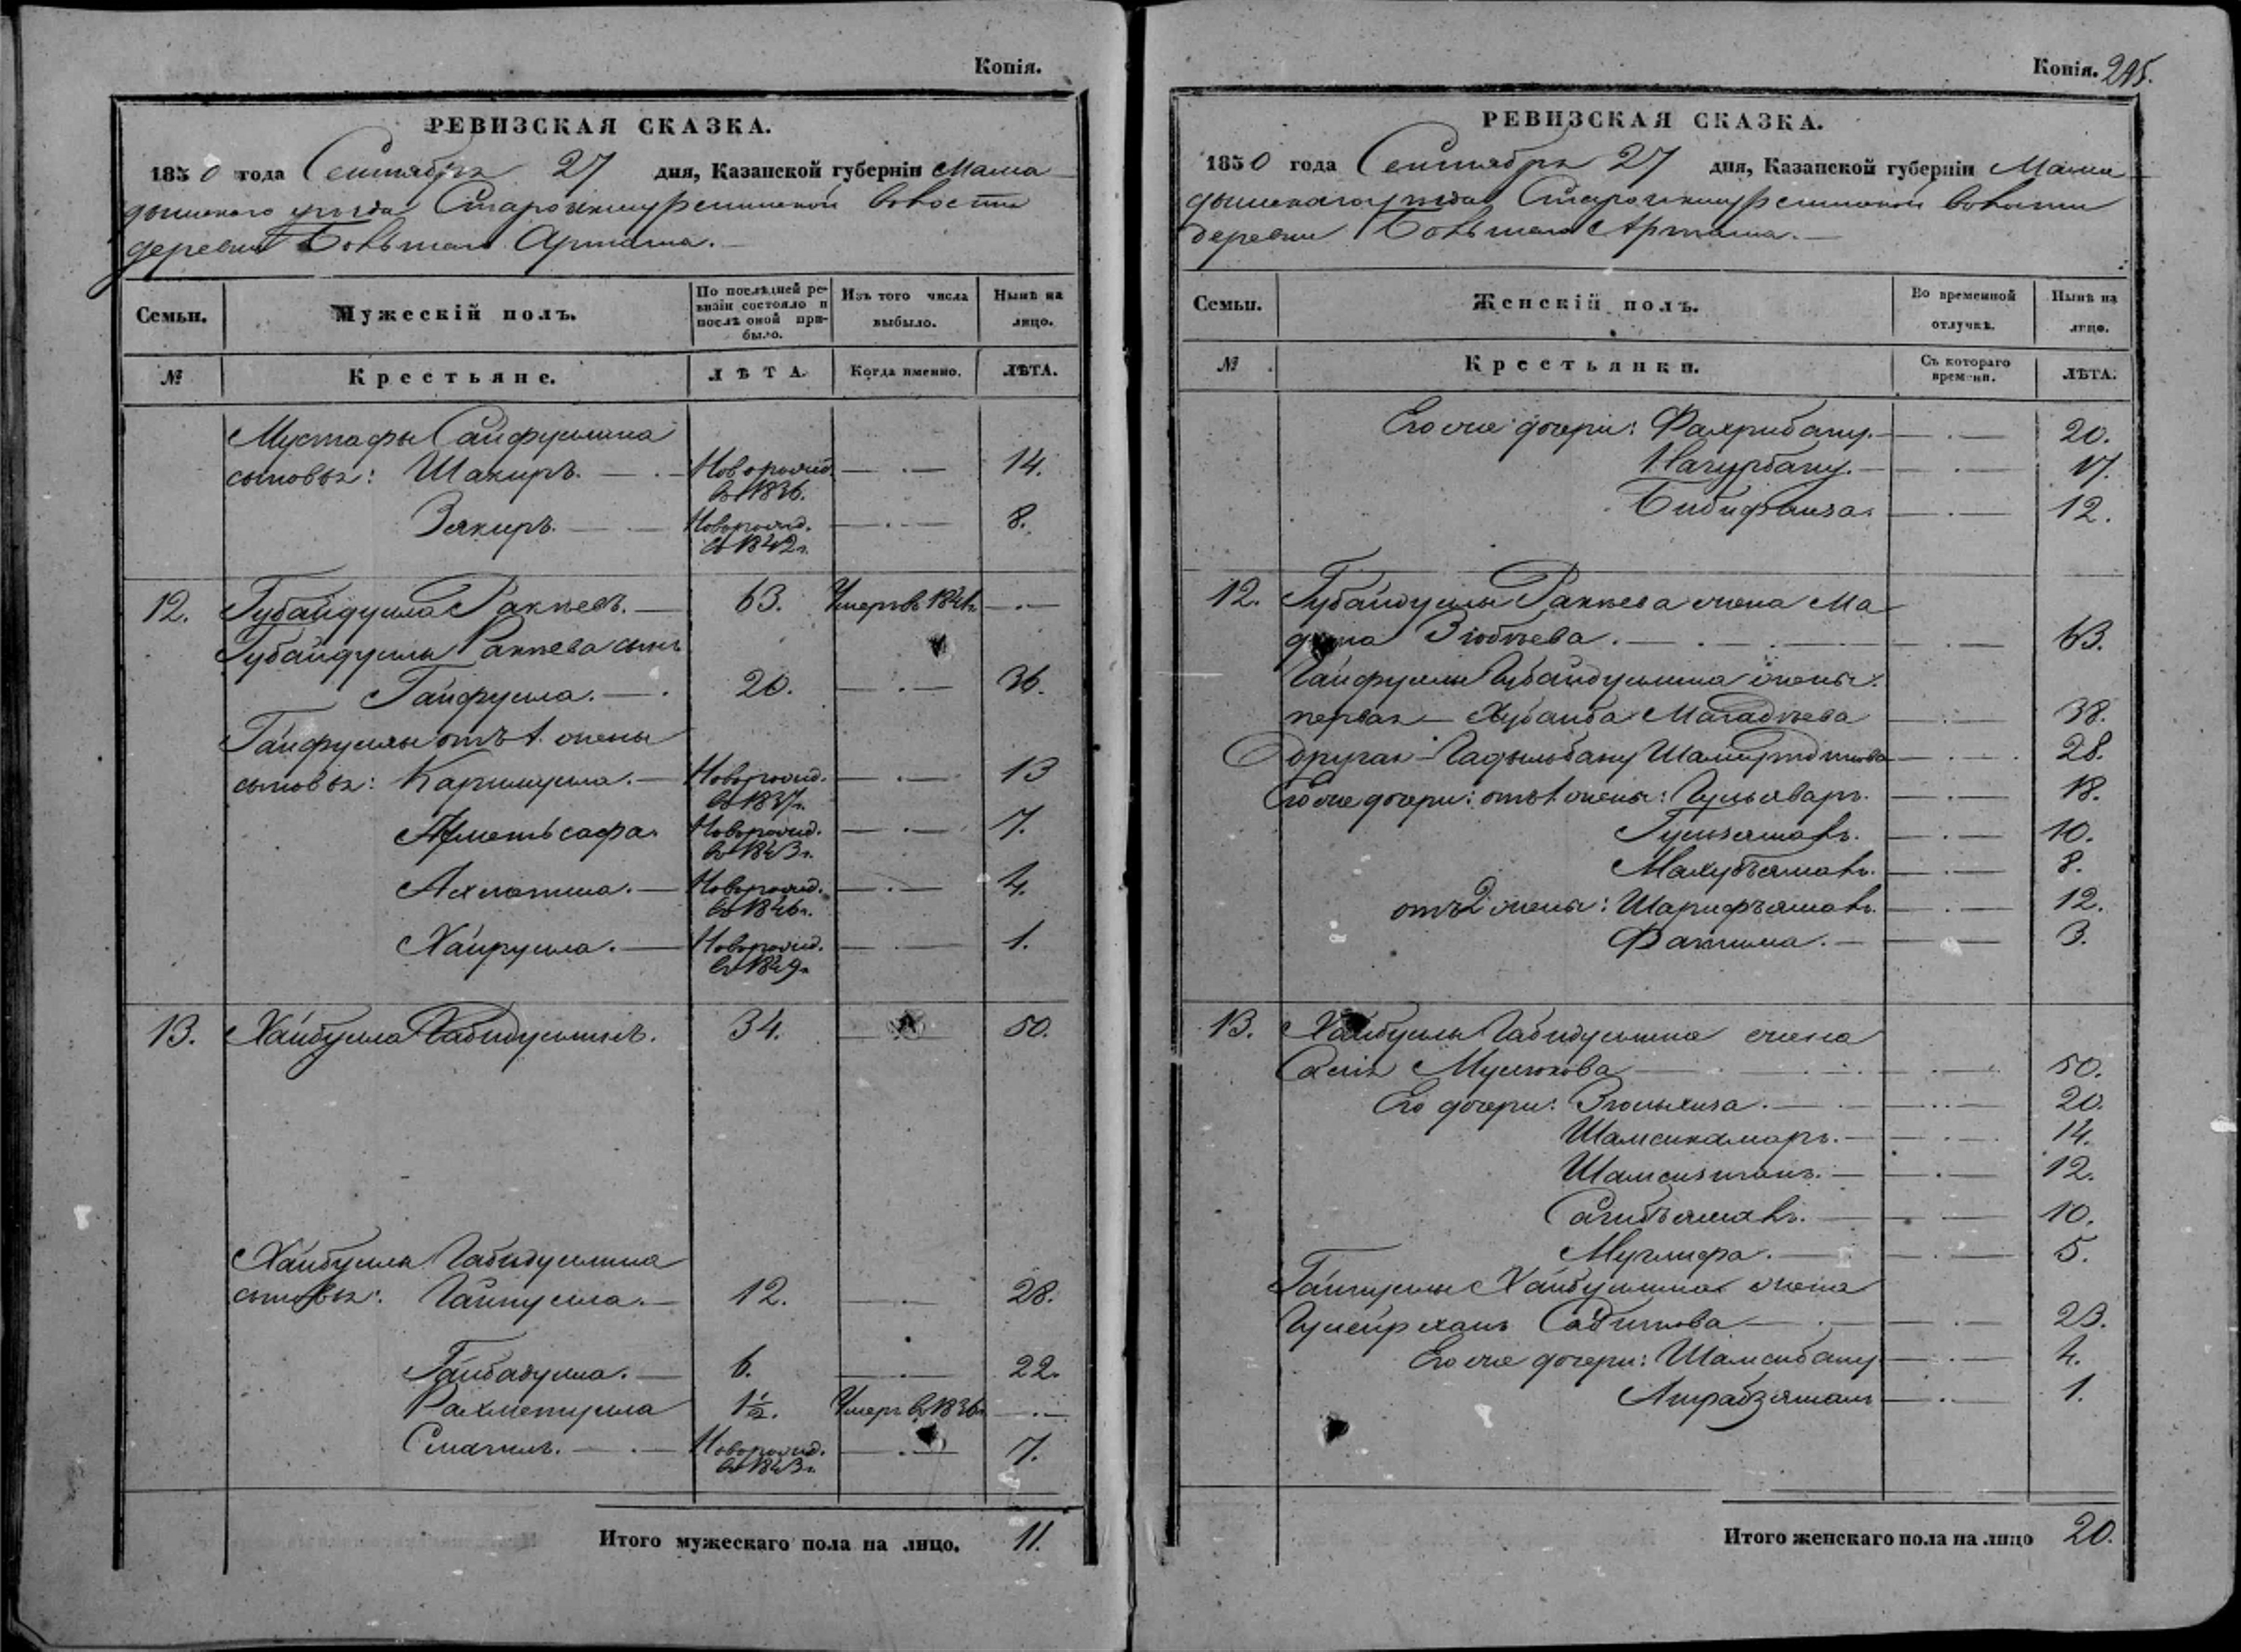 Копія.
РЕВИЗСКАЯ СКАЗКА.
1850 года Сентября 27 дня, Казанской губерніи Мама
дышскаго уѣзда волости
деревни Большаго Арташа.
Семьи.
Мужескій полъ.
По послѣдней ре-
визіи состояло и
послѣ оной при-
было.
Изъ того числа
выбыло.
Нынѣ на
лицо.
№
Крестьяне.
ЛѢТА.
Когда именно.
ЛѢТА.
Мустафы Сайфуллина
сыновья: Шакиръ. — Новорожд. — 14.
в 1836.
Зякиръ. — Новорожд. — 8.
в 1842г.
12. Губайдулла Ракаевъ. — 63. Умеръ в —
Губайдуллы Ракаева сынъ
Гайфулла. — 20. — 36.
Гайфуллы отъ 1. жены
сыновья: Каримулла. — Новорожд. — 13
в 1837г.
Ахметьсафа. Новорожд. — 7.
в 1843г.
Новорожд. — 4.
в 1846г.
Хайрулла. — Новорожд. — 1.
в 1849г.
13. Хайбулла Габидуллинъ. 34. — 50.
Хайбуллы Габидуллина
сыновья: Гайнулла. — 12. — 28.
Гайбадулла. — 6. — 22.
Рахметулла 1½. Умеръ в 1836г. —
Смагилъ. — Новорожд. — 7.
в 1843г.
Итого мужескаго пола на лицо. 11.
Копія. 295.
РЕВИЗСКАЯ СКАЗКА.
1850 года Сентября 27 дня, Казанской губерніи Мама
дышскаго уѣзда волости
деревни Большаго Арташа. —
Семьи.
Женскій полъ.
Во временной
отлучкѣ.
Нынѣ на
лицо.
№
Крестьянки.
Съ котораго
времени.
ЛѢТА.
Его же дочери: Фахрибану. — 20.
Нагурбану. — 17.
Бибифаиза. — 12.
12. Губайдуллы Ракаева жена Ма
Зюбаева. — 63.
Гайфуллы Губайдуллина жены:
первая — Хубаиба — 38.
другая — Гадыльбану — 28.
Его же дочери: отъ 1 жены: Гульяваръ. — 18.
Гульзямалъ. — 10.
Махубъямалъ. — 8.
отъ 2 жены: Шарифъямалъ. — 12.
Фатима. — 3.
13. Хайбуллы Габидуллина жена
Муслюмова — 50.
Его дочери: — 20.
Шамсикамаръ. — 14.
12.
Сагибъямалъ. — 10.
Муглифа. — 5.
Гайнуллы Хайбуллина жена
Садыкова — 23.
Его же дочери: Шамсибану — 4.
1.
Итого женскаго пола на лицо 20.